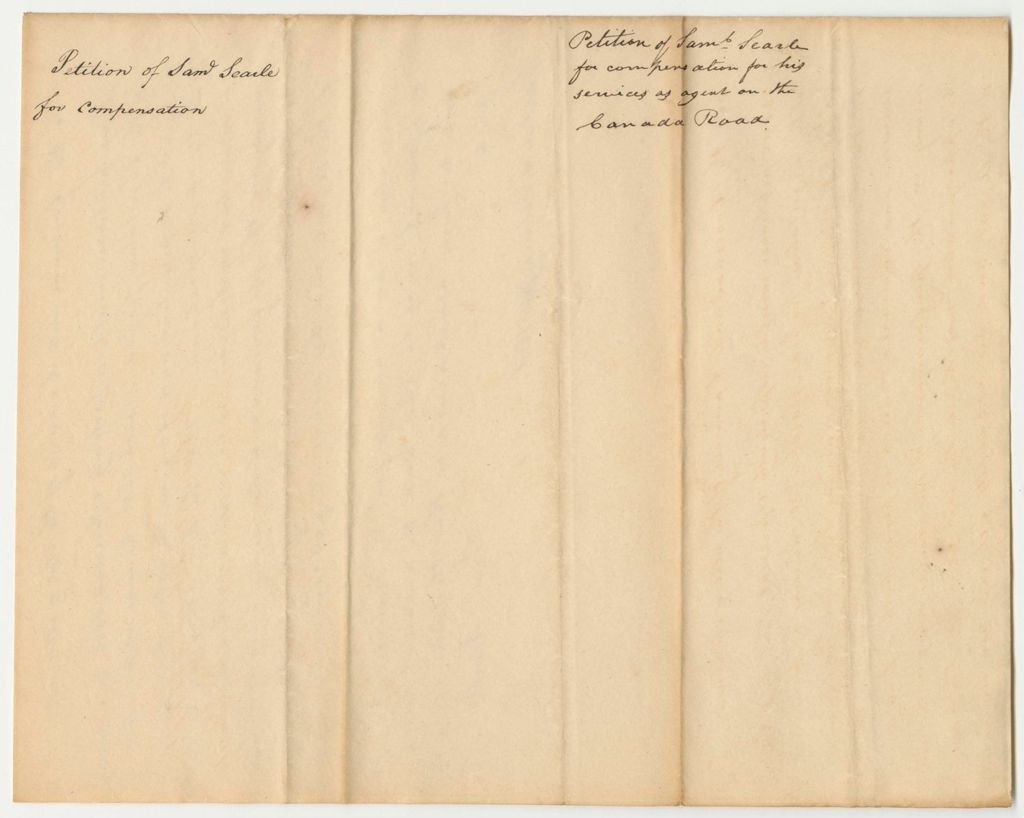 Petition of Saml Searle
for Compensation
Petition of Saml Searle
for compensation for his
services as agent on the
Canada Road.